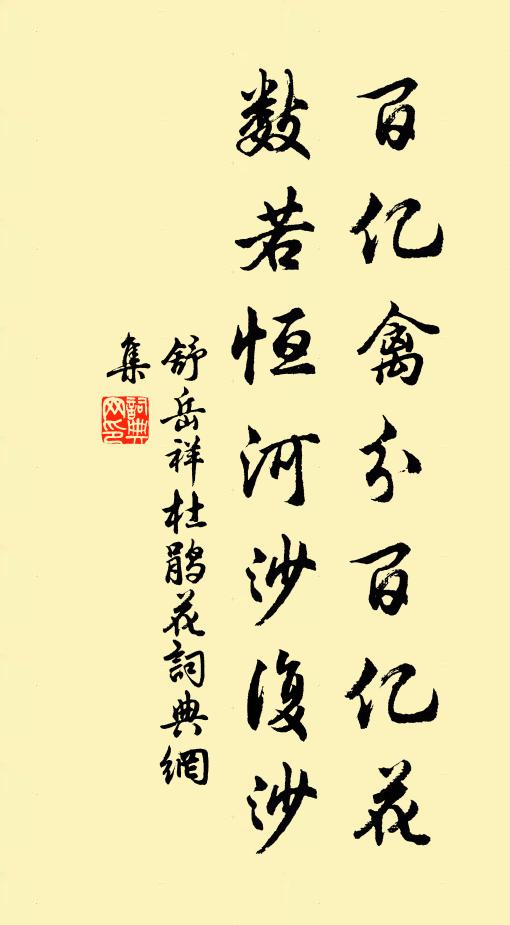 百亿禽分百亿花
数若恒河沙复沙
舒岳祥杜鹃花词典网
集
词典
网印